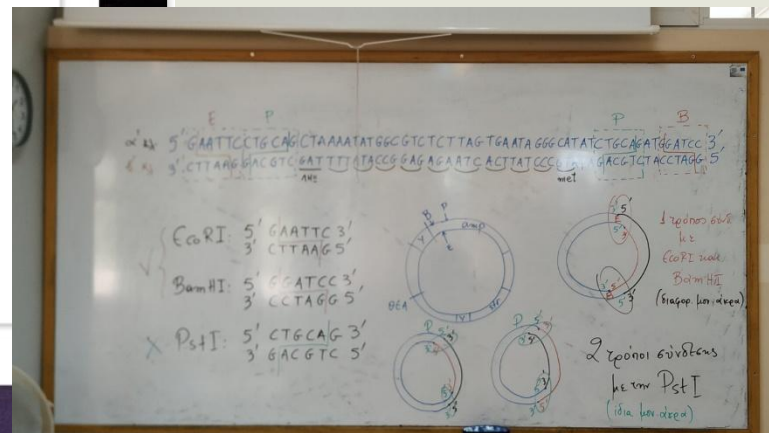 E P P B
α' κλ. 5' GAATTCCTGCAGCTAAAATATGGCGTCTCTTAGTGAATAGGGCATATCTGCAGATGGATCC 3'
3' CTTAAGGACGTCGATTTTATACCGGAGAGAATCACTTATCCCGTATAGACGTCTACCTAGG 5'
met
EcoRI: 5' GAATTC 3'
3' CTTAAG 5'
BamHI: 5' GGATCC 3'
3' CCTAGG 5'
X PstI: 5' CTGCAG 3'
3' GACGTC 5'
B P
amp
ΘΕΑ
1 τρόπος σύνδ
με
EcoRI και
BamHI
(διαφορ. μον. άκρα)
P P
2 τρόποι σύνδεσης
με την PstI
(ίδια μον. άκρα)